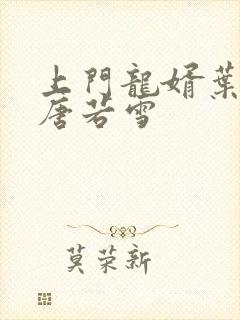 上門龍婿葉
唐若雪
莫荣新